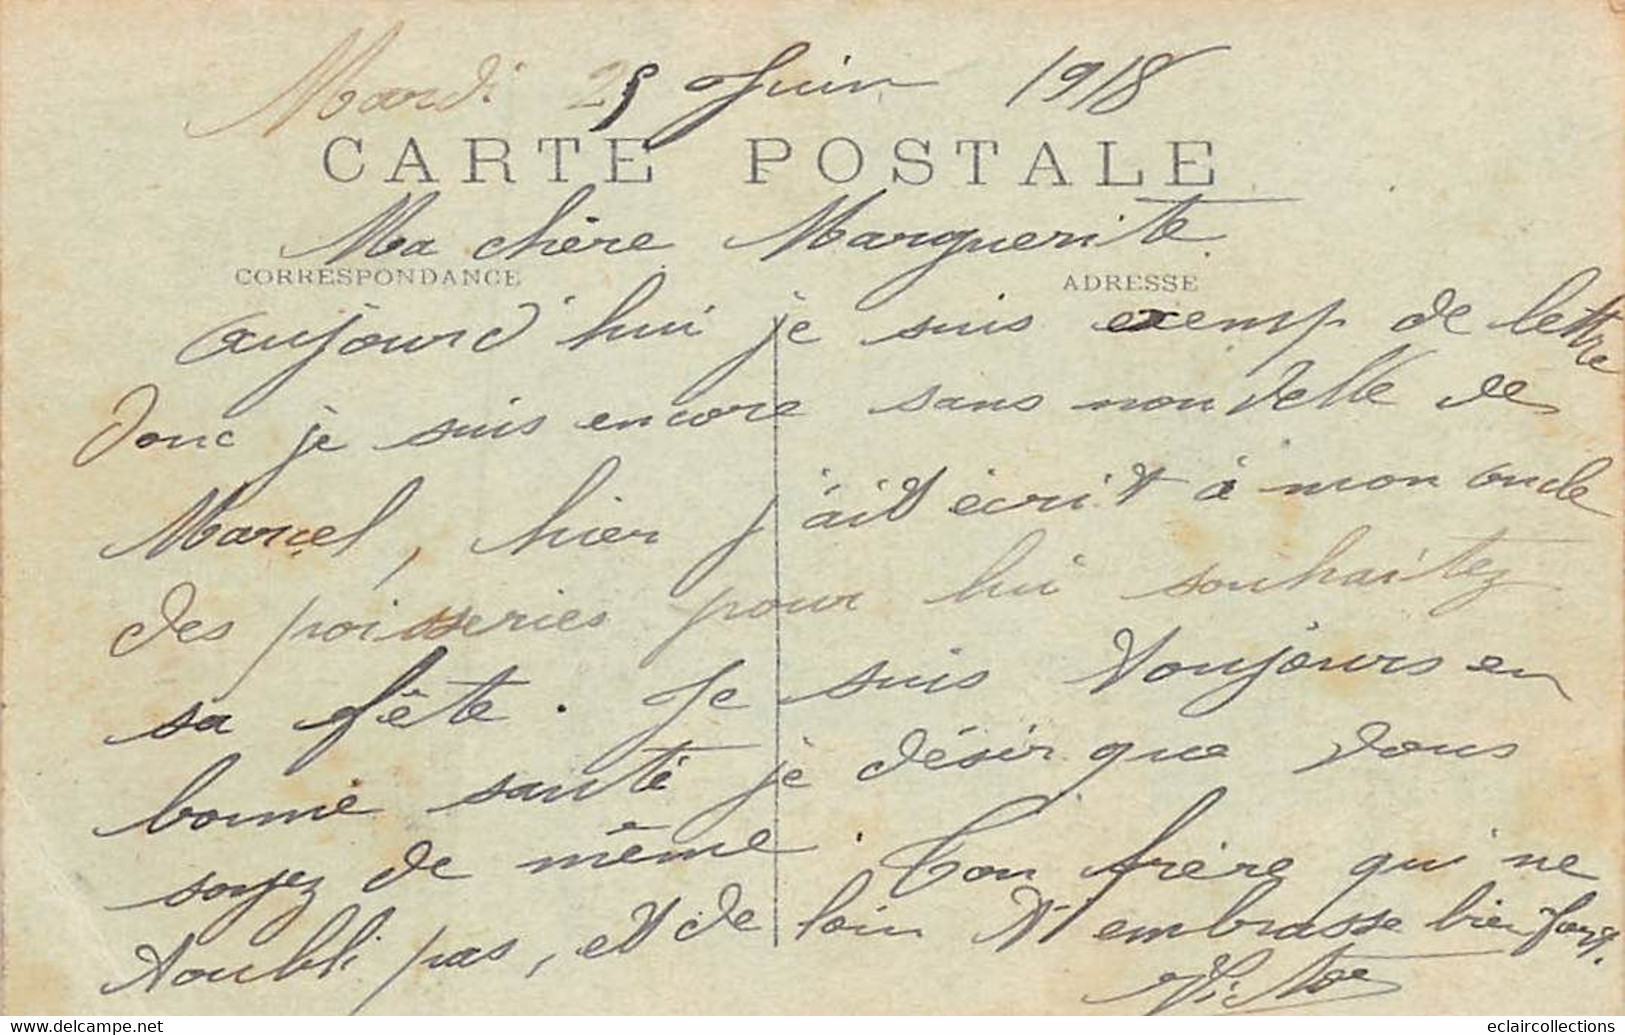 Mardi 25 Juin 1918
CARTE POSTALE
Ma chère Marguerite
CORRESPONDANCE ADRESSE
aujourd'hui je suis exemp de lettre
donc je suis encore sans nouvelle de
Marcel, hier j'ait écrit à mon oncle
des poisseries pour lui souhaitez
sa fête. Je suis toujours en
bonne santé je désir que vous
soyez de même. Ton frère qui ne
t'oubli pas, et de loin t'embrasse bien fort.
Victor
www.delcampe.net
eclaircollections